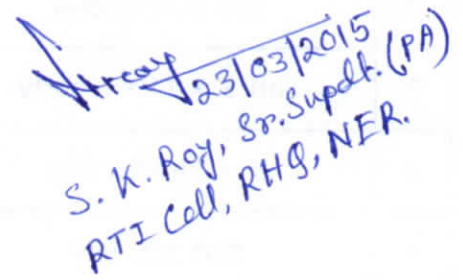 23/03/2015
S. K. Roy, Sr. Supdt. (PA)
RTI Cell, RHQ, NER.